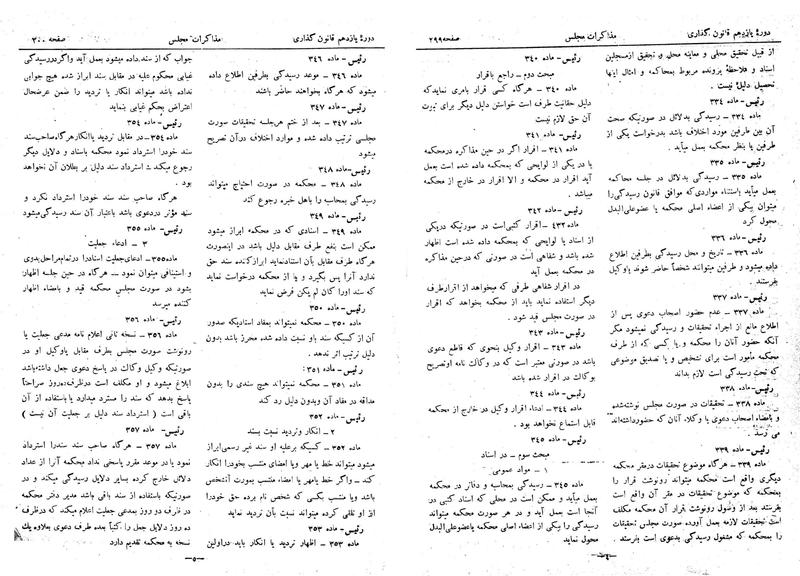 دورهٔ یازدهم قانون گذاری
مذاکرات مجلس
صفحه ۲۹۹
از قبیل تحقیق محلی و معاینه محل و تحقیق از مسجلین
اسناد و ملاحظهٔ پرونده مربوط بمحاکمه و امثال اینها
تحصیل دلیل نیست .
رئیس-ماده ۳۳۴
ماده ۳۳۴ - رسیدگی بدلائل در صورتیکه صحت
آن بین طرفین مورد اختلاف باشد بدرخواست یکی از
طرفین یا بنظر محکمه بعمل میآید .
رئیس-ماده ۳۳۵
ماده ۳۳۵ - رسیدگی بدلائل در جلسه محاکمه
بعمل میآید باستثناء مواردی که موافق قانون رسیدگی را
میتوان بیکی از اعضاء اصلی محکمه یا عضو علی البدل
محول کرد
رئیس-ماده ۳۳۶
ماده ۳۳۶ - تاریخ و محل رسیدگی بطرفین اطلاع
داده میشود و طرفین میتوانند شخصاً حاضر شوند یا وکیل
بفرستند .
رئیس-ماده ۳۳۷
ماده ۳۳۷ - عدم حضور اصحاب دعوی پس از
اطلاع مانع از اجراء تحقیقات و رسیدگی نمیشود مگر
آنکه حضور آنان را محکمه و یا کسی که از طرف
محکمه مأمور است برای تشخیص و یا تصدیق موضوعی
که تحت رسیدگی است لازم بداند
رئیس-ماده ۳۳۸
ماده ۳۳۸ - تحقیقات در صورت مجلس نوشته شده
و بامضاء اصحاب دعوی یا وکلاء آنان که حضور داشته اند
می رسد .
رئیس-ماده ۳۳۹
ماده ۳۳۹ - هرگاه موضوع تحقیقات در مقر محکمه
دیگری واقع است محکمه میتواند رونوشت قرار را
بمحکمه که موضوع تحقیقات در مقر آن واقع است
بفرستد بعد از وصول رونوشت بقرار آن محکمه مکلف
است تحقیقات لازمه بعمل آورده صورت مجلس تحقیقات
را بمحکمه که مشغول رسیدگی بدعوی است بفرستد .
رئیس-ماده ۳۴۰
مبحث دوم - راجع باقرار
ماده ۳۴۰ - هرگاه کسی قرار بامری نماید که
دلیل حقانیت طرف است خواستن دلیل دیگر برای ثبوت
آن حق لازم نیست
رئیس-ماده ۳۴۱
ماده ۳۴۱ - اقرار اگر در حین مذاکره در محکمه
یا در یکی از لوایحی که بمحکمه داده شده است بعمل
آید اقرار در محکمه و الا اقرار در خارج از محکمه
میباشد .
رئیس-ماده ۳۴۲
ماده ۳۴۲- اقرار کتبی است در صورتیکه در یکی
از اسناد یا لوایحی که بمحکمه داده شده است اظهار
شده باشد و شفاهی است در صورتی که در حین مذاکره
در محکمه بعمل آید
در اقرار شفاهی طرفی که میخواهد از اقرار طرف
دیگر استفاده نماید باید از محکمه بخواهد که اقرار
در صورت مجلس قید شود .
رئیس-ماده ۳۴۳
ماده ۳۴۳ - اقرار وکیل بنحوی که قاطع دعوی
باشد در صورتی معتبر است که در وکالت نامه او تصریح
بوکالت در اقرار شده باشد
رئیس-ماده ۳۴۴
ماده ۳۴۴ - ادعاء اقرار وکیل در خارج از محکمه
قابل استماع نخواهد بود .
رئیس-ماده ۳۴۵
مبحث سوم - در اسناد
۱ - مواد عمومی
ماده ۳۴۵ - رسیدگی بمحاسبه و دفاتر در محکمه
بعمل میآید و ممکن است در محلی که اسناد کتبی در
آنجا است بعمل آید و در هر صورت محکمه میتواند
رسیدگی را بیکی از اعضاء اصلی محکمه یا عضو علی البدل
محول نماید
-۴-
دورهٔ یازدهم قانون گذاری
مذاکرات مجلس
صفحه ۳۰۰
رئیس-ماده ۳۴۶
ماده ۳۴۶ - موعد رسیدگی بطرفین اطلاع داده
میشود که هرگاه بخواهند حاضر باشند
رئیس-ماده ۳۴۷
ماده ۳۴۷ - بعد از ختم هر جلسه تحقیقات صورت
مجلسی ترتیب داده شده و موارد اختلاف در آن تصریح
میشود
رئیس-ماده ۳۴۸
ماده ۳۴۸ - محکمه در صورت احتیاج میتواند
رسیدگی بمحاسبه را باهل خبره رجوع کند
رئیس-ماده ۳۴۹
ماده ۳۴۹ - اسنادی که در محکمه ابراز میشود
ممکن است بنفع طرف مقابل دلیل باشد در اینصورت
هرگاه طرف مقابل بآن استناد نماید ابراز کننده سند حق
ندارد آنرا پس بگیرد و یا از محکمه درخواست نماید
که سند او را کان لم یکن فرض نماید
رئیس-ماده ۳۵۰
ماده ۳۵۰ - محکمه نمیتواند بمفاد اسنادیکه صدور
آن از کسیکه سند باو نسبت داده شده محرز باشد بدون
دلیل ترتیب اثر ندهد .
رئیس-ماده ۳۵۱ :
ماده ۳۵۱ - محکمه نمیتواند هیچ سندی را بدون
مداقه در مفاد آن وبدون دلیل رد کند
رئیس-ماده ۳۵۲
۲ - انکار و تردید نسبت بسند
ماده ۳۵۲ - کسیکه بر علیه او سند غیر رسمی ابراز
میشود میتواند خط یا مهر ویا امضای منتسب بخود را انکار
کند - و اگر خط یا مهر یا امضاء منتسب بصورت آن شخص
باشد ویا منتسب بکسی که شخص نام برده حق خود را
از او تلقی کرده میتواند نسبت بآن تردید نماید
رئیس-ماده ۳۵۳
ماده ۳۵۳ - اظهار تردید یا انکار باید در اولین
جواب که از سند داده میشود بعمل آید و اگر در رسیدگی
غیابی محکوم علیه در مقابل سند ابراز شده هیچ جوابی
نداده باشد میتواند انکار یا تردید را ضمن عرضحال
اعتراض بحکم غیابی بنماید
رئیس-ماده ۳۵۴
ماده ۳۵۴- در مقابل تردید یا انکار هرگاه صاحب سند
سند خود را استرداد نمود محکمه باسناد و دلایل دیگر
رجوع میکند و استرداد سند دلیل بر بطلان آن نخواهد
بود .
هرگاه صاحب سند سند خود را استرداد نکرد و
سند مؤثر در دعوی باشد باعتبار آن سند رسیدگی میشود
رئیس-ماده ۳۵۵
۳ - ادعاء جعلیت
ماده ۳۵۵- ادعای جعلیت اسناد را در تمام مراحل بدوی
و استینافی میتوان نمود - هرگاه در حین جلسه اظهار
بشود در صورت مجلس محکمه قید و بامضاء اظهار
کننده میرسد
رئیس-ماده ۳۵۶
ماده ۳۵۶ - نسخه ثانی اعلام نامه مدعی جعلیت یا
رونوشت صورت مجلس بطرف مقابل یا وکیل او در
صورتیکه وکیل وکالت در پاسخ دعوی جعل داشته باشد
ابلاغ میشود و او مکلف است در ظرف ده روز صراحتاً
پاسخ بدهد که سند را مسترد میدارد یا باستفاده از آن
باقی است ( استرداد سند دلیل بر جعلیت آن نیست )
رئیس-ماده ۳۵۷
ماده ۳۵۷ - هرگاه صاحب سند سند را استرداد
نمود یا در موعد مقرر پاسخی نداد محکمه آنرا از عداد
دلائل خارج کرده بسایر دلایل رسیدگی میکند و در
صورتیکه باستفاده از سند باقی باشد مدیر دفتر محکمه
در ظرف دو روز بمدعی جعلیت اعلام میکند که در ظرف
ده روز دلایل جعل را کتباً بعده طرف دعوی بعلاوه یک
نسخه به محکمه تقدیم دارد
-۵-